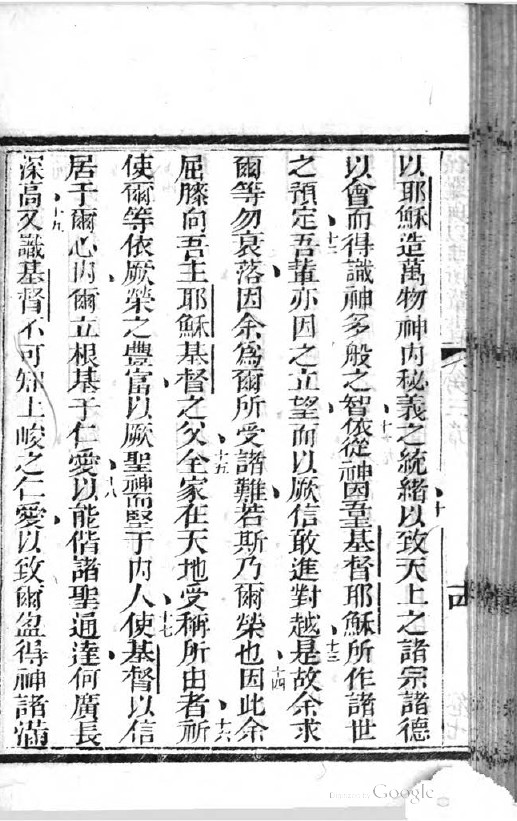 以耶穌造萬物神內秘義之統緒以致天上之諸宗諸德
以會而得識神多般之智依從神因吾主基督耶穌所作諸世
之預定吾輩亦因之立望而以厥信敢進對越是故余求
爾等勿衰落因余為爾所受諸難若斯乃爾榮也因此余
屈膝向吾主耶穌基督之父全家在天地受稱所由者祈
使爾等依厥榮之豐富以厥聖神而堅于內人使基督以信
居于爾心內爾立根基于仁愛以能偕諸聖通達何廣長
深高又識基督不可知上峻之仁愛以致爾盈得神諸滿
十
十一
十二
十三
十四
十五
十六
十七
十八
十九
Google